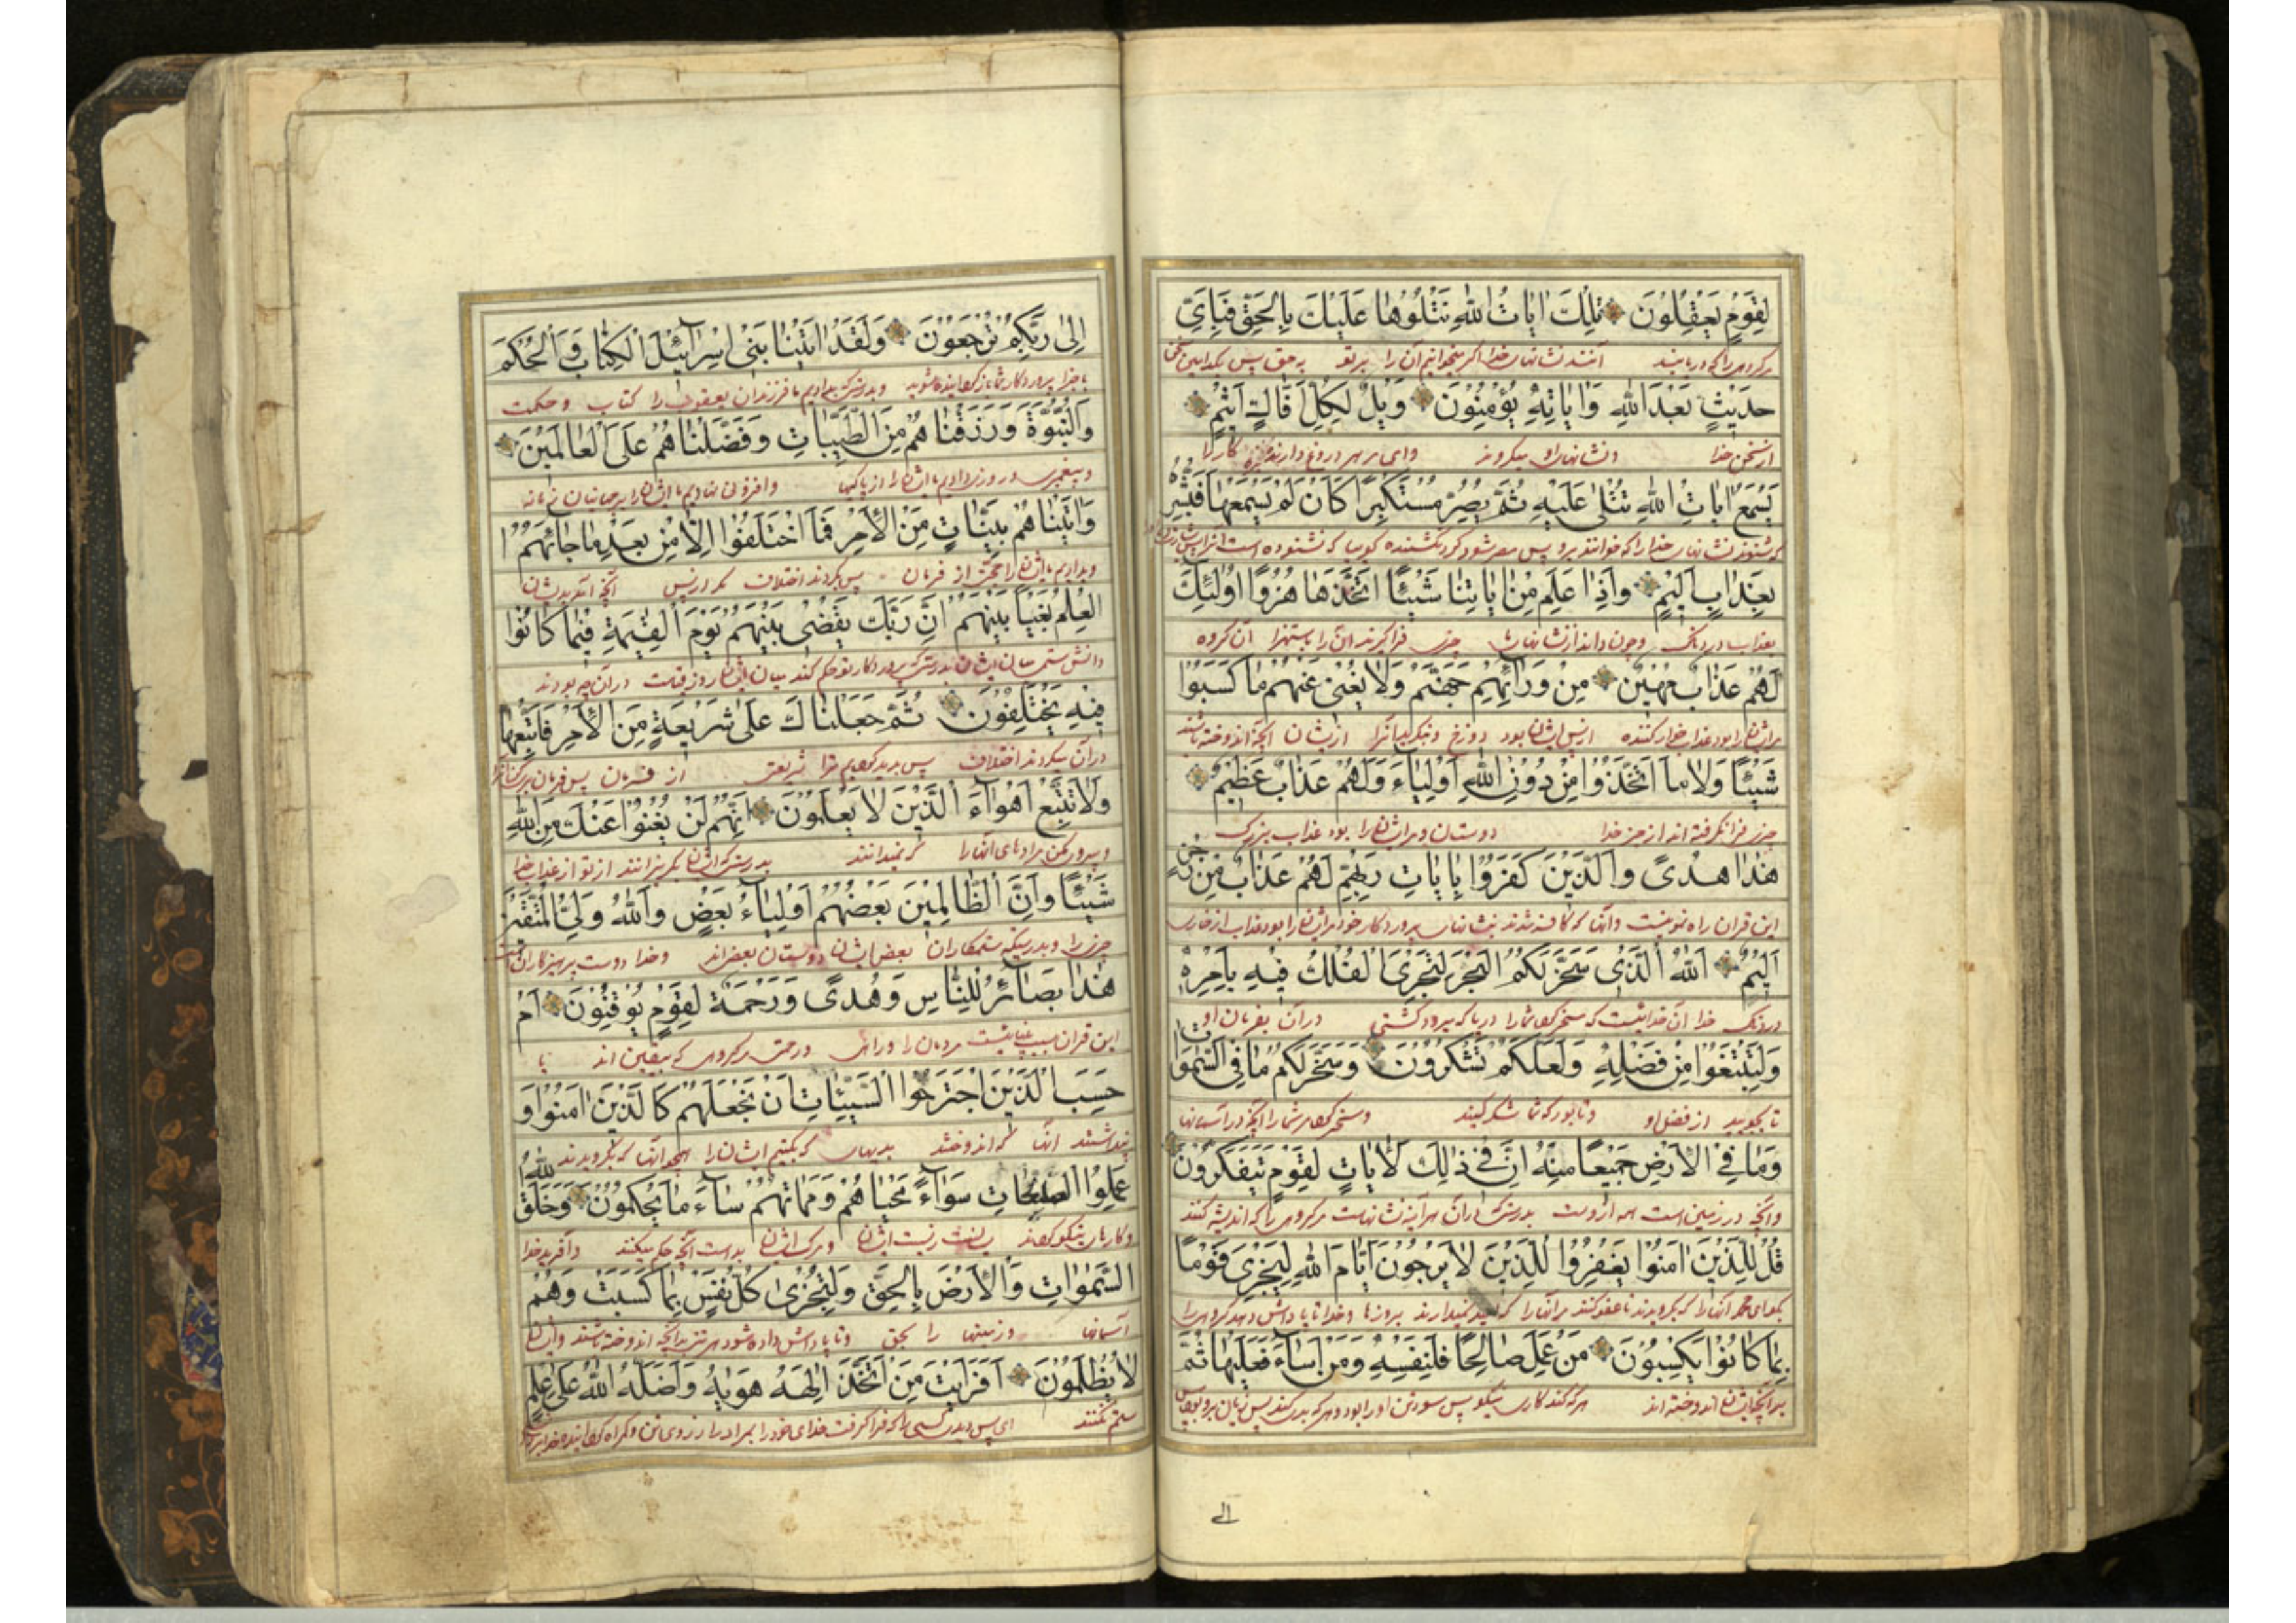 لِقَوْمٍ يَعْقِلُونَ تِلْكَ اٰيَاتُ اللّٰهِ نَتْلُوهَا عَلَيْكَ بِالْحَقِّ فَبِاَيِّ
مر کروهی را که دریابند آنند نشانهای خدا که میخوانیم آن را بر تو به حق پس بکدامین
حَدِيثٍ بَعْدَ اللّٰهِ وَاٰيَاتِهِ يُؤْمِنُونَ وَيْلٌ لِكُلِّ اَفَّاكٍ اَثِيمٍ
از سخن خدا و نشانهای او میکروند وای مر هر دروغ دارنده کار را
يَسْمَعُ اٰيَاتِ اللّٰهِ تُتْلٰى عَلَيْهِ ثُمَّ يُصِرُّ مُسْتَكْبِرًا كَاَنْ لَمْ يَسْمَعْهَا فَبَشِّرْهُ
که شنوند نشانهای خدا را که خوانند برو پس مصر شود کردنکشنده کویا که نشنوده است آنرا پس
بِعَذَابٍ اَلِيمٍ وَاِذَا عَلِمَ مِنْ اٰيَاتِنَا شَيْئًا اتَّخَذَهَا هُزُوًا اُولٰئِكَ
بعذاب دردناک و چون داند از نشانهای ما چیزی فرا کیرند آن را باستهزا آن کروه
لَهُمْ عَذَابٌ مُهِينٌ مِنْ وَرَائِهِمْ جَهَنَّمُ وَلَا يُغْنِي عَنْهُمْ مَا كَسَبُوا
مر ایشان را بود عذاب خوار کننده از پس ایشان بود دوزخ و از ایشان آنچه اندوخته باشند
شَيْئًا وَلَا مَا اتَّخَذُوا مِنْ دُونِ اللّٰهِ اَوْلِيَاءَ وَلَهُمْ عَذَابٌ عَظِيمٌ
چیزی فرا کرفته اند از جز خدا دوستان و مر ایشان را بود عذاب بزرک
هٰذَا هُدًى وَالَّذِينَ كَفَرُوا بِاٰيَاتِ رَبِّهِمْ لَهُمْ عَذَابٌ مِنْ رِجْزٍ
این قران راه نموینست و آنها که کافر شدند بنشانهای پروردکار خود مر ایشان را بود عذاب از خاری
اَلِيمٌ اَللّٰهُ الَّذِي سَخَّرَ لَكُمُ الْبَحْرَ لِتَجْرِيَ الْفُلْكُ فِيهِ بِاَمْرِهِ
دردناک خدا آن خدائیست که مسخر کرد شما را دریا که برود کشتی در آن بفرمان او
وَلِتَبْتَغُوا مِنْ فَضْلِهِ وَلَعَلَّكُمْ تَشْكُرُونَ وَسَخَّرَ لَكُمْ مَا فِي السَّمٰوَاتِ
تا بجویید از فضل او و تا بود که شما شکر کنید و مسخر کرد مر شما را آنچه در آسمانها
وَمَا فِي الْاَرْضِ جَمِيعًا مِنْهُ اِنَّ فِي ذٰلِكَ لَاٰيَاتٍ لِقَوْمٍ يَتَفَكَّرُونَ
و آنچه در زمین است همه از وست بدرستی که در آن هر آینه نشانهاست مر کروهی را که اندیشه کنند
قُلْ لِلَّذِينَ اٰمَنُوا يَغْفِرُوا لِلَّذِينَ لَا يَرْجُونَ اَيَّامَ اللّٰهِ لِيَجْزِيَ قَوْمًا
بکو ای محمد آنها را که بکرویدند تا عفو کنند مر آنها را که امید نمیدارند بروزها خدا تا پاداش دهد کروهی را
بِمَا كَانُوا يَكْسِبُونَ مَنْ عَمِلَ صَالِحًا فَلِنَفْسِهِ وَمَنْ اَسَاءَ فَعَلَيْهَا ثُمَّ
بدآنچه ایشان اندوخته اند هر که کند کاری نیکو پس سود تن او را بود و هر که بدی کند پس زیان برو بود پس
الى
اِلٰى رَبِّكُمْ تُرْجَعُونَ وَلَقَدْ اٰتَيْنَا بَنِي اِسْرَائِيلَ الْكِتَابَ وَالْحُكْمَ
با جزا پروردکار شما باز کردانیده شوید و بدرستی که بدادیم ما فرزندان یعقوب را کتاب و حکمت
وَالنُّبُوَّةَ وَرَزَقْنَاهُمْ مِنَ الطَّيِّبَاتِ وَفَضَّلْنَاهُمْ عَلَى الْعَالَمِينَ
و پیغمبری و روزی دادیم ما ایشان را از پاکیها و افزونی نهادیم ما ایشان را بر جهانیان زمانه
وَاٰتَيْنَاهُمْ بَيِّنَاتٍ مِنَ الْاَمْرِ فَمَا اخْتَلَفُوا اِلَّا مِنْ بَعْدِ مَا جَائَهُمُ
و بدادیم ما ایشان را حجت از فرمان پس نکردند اختلاف مکر از پس آنچه آمد بدیشان
الْعِلْمُ بَغْيًا بَيْنَهُمْ اِنَّ رَبَّكَ يَقْضِي بَيْنَهُمْ يَوْمَ الْقِيٰمَةِ فِيمَا كَانُوا
دانش ستم میان ایشان بدرستی که پروردکار تو حکم کند میان ایشان روز قیامت در آن چه بودند
فِيهِ يَخْتَلِفُونَ ثُمَّ جَعَلْنَاكَ عَلٰى شَرِيعَةٍ مِنَ الْاَمْرِ فَاتَّبِعْهَا
در آن میکردند اختلاف پس بدید کردیم ترا شریعتی از فرمان پس فرمان بر
وَلَا تَتَّبِعْ اَهْوَاءَ الَّذِينَ لَا يَعْلَمُونَ اِنَّهُمْ لَنْ يُغْنُوا عَنْكَ مِنَ اللّٰهِ
و پیروی مکن مرادهای آنها را که نمیدانند بدرستی که ایشان از تو از عذاب خدا
شَيْئًا وَاِنَّ الظَّالِمِينَ بَعْضُهُمْ اَوْلِيَاءُ بَعْضٍ وَاللّٰهُ وَلِيُّ الْمُتَّقِينَ
چیزی را و بدرستیکه ستمکاران بعض ایشان دوستان بعض اند و خدا دوست پرهیزکاران است
هٰذَا بَصَائِرُ لِلنَّاسِ وَهُدًى وَرَحْمَةٌ لِقَوْمٍ يُوقِنُونَ اَمْ
این قران سبب بیناییست مردمان را و راهی و رحمتی مر کروهی که بیقین اند یا
حَسِبَ الَّذِينَ اجْتَرَحُوا السَّيِّئَاتِ اَنْ نَجْعَلَهُمْ كَالَّذِينَ اٰمَنُوا وَ
پنداشتند آنها که اندوختند بدیهای که بکنیم ایشان را همچو آنها که بکرویدند
عَمِلُوا الصَّالِحَاتِ سَوَاءً مَحْيَاهُمْ وَمَمَاتُهُمْ سَاءَ مَا يَحْكُمُونَ وَخَلَقَ اللّٰهُ
و کارهای نیکو کردند زیست ایشان و مرک ایشان بد است آنچه حکم میکنند و آفرید خدا
السَّمٰوَاتِ وَالْاَرْضَ بِالْحَقِّ وَلِتُجْزٰى كُلُّ نَفْسٍ بِمَا كَسَبَتْ وَهُمْ
آسمانها و زمینها را بحق و تا پاداش داده شود هر تن بدآنچه اندوخته باشند و ایشان
لَا يُظْلَمُونَ اَفَرَاَيْتَ مَنِ اتَّخَذَ اِلٰهَهُ هَوٰيهُ وَاَضَلَّهُ اللّٰهُ عَلٰى عِلْمٍ
ستم نکنند ای پس دیدی کسی را که فرا کرفت خدای خود را بمراد و آرزوی تن و کمراه کردانیده خدا